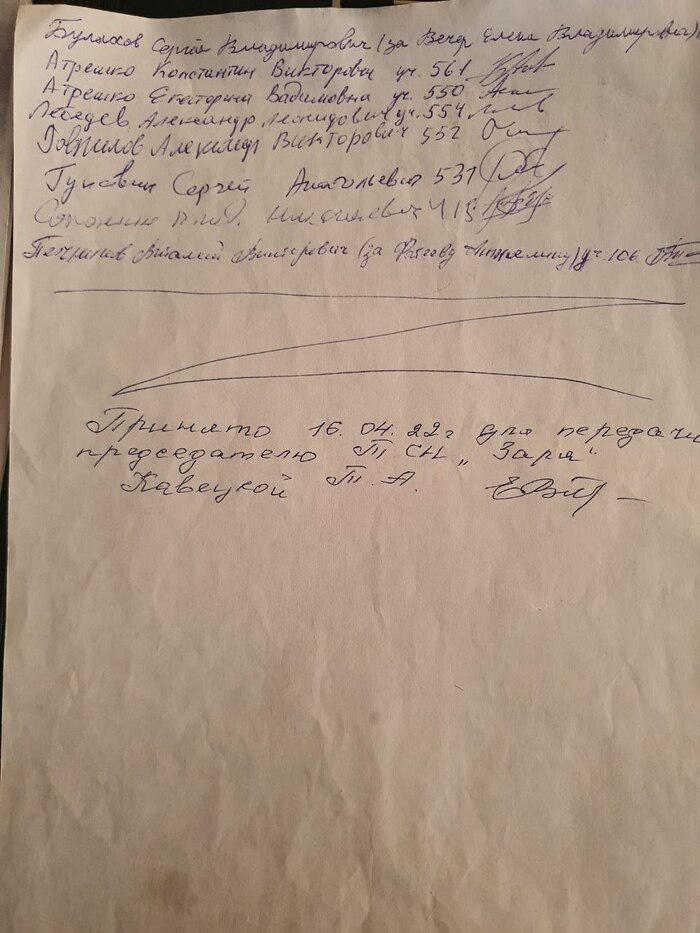 Булахов Сергей Владимирович (за Вечер Елена Владимировна)
Атрешко Константин Викторович уч. 561
Атрешко Екатерина Вадимовна уч. 550
Лебедев Александр Леонидович уч. 554
Александр Викторович 552
Сергей Анатольевич 531
Николаевич 415
Виталий Викторович (за уч. 106
Принято 16.04.22г для передачи
председателю ТСН „Заря“
Кавецкой Т.А.